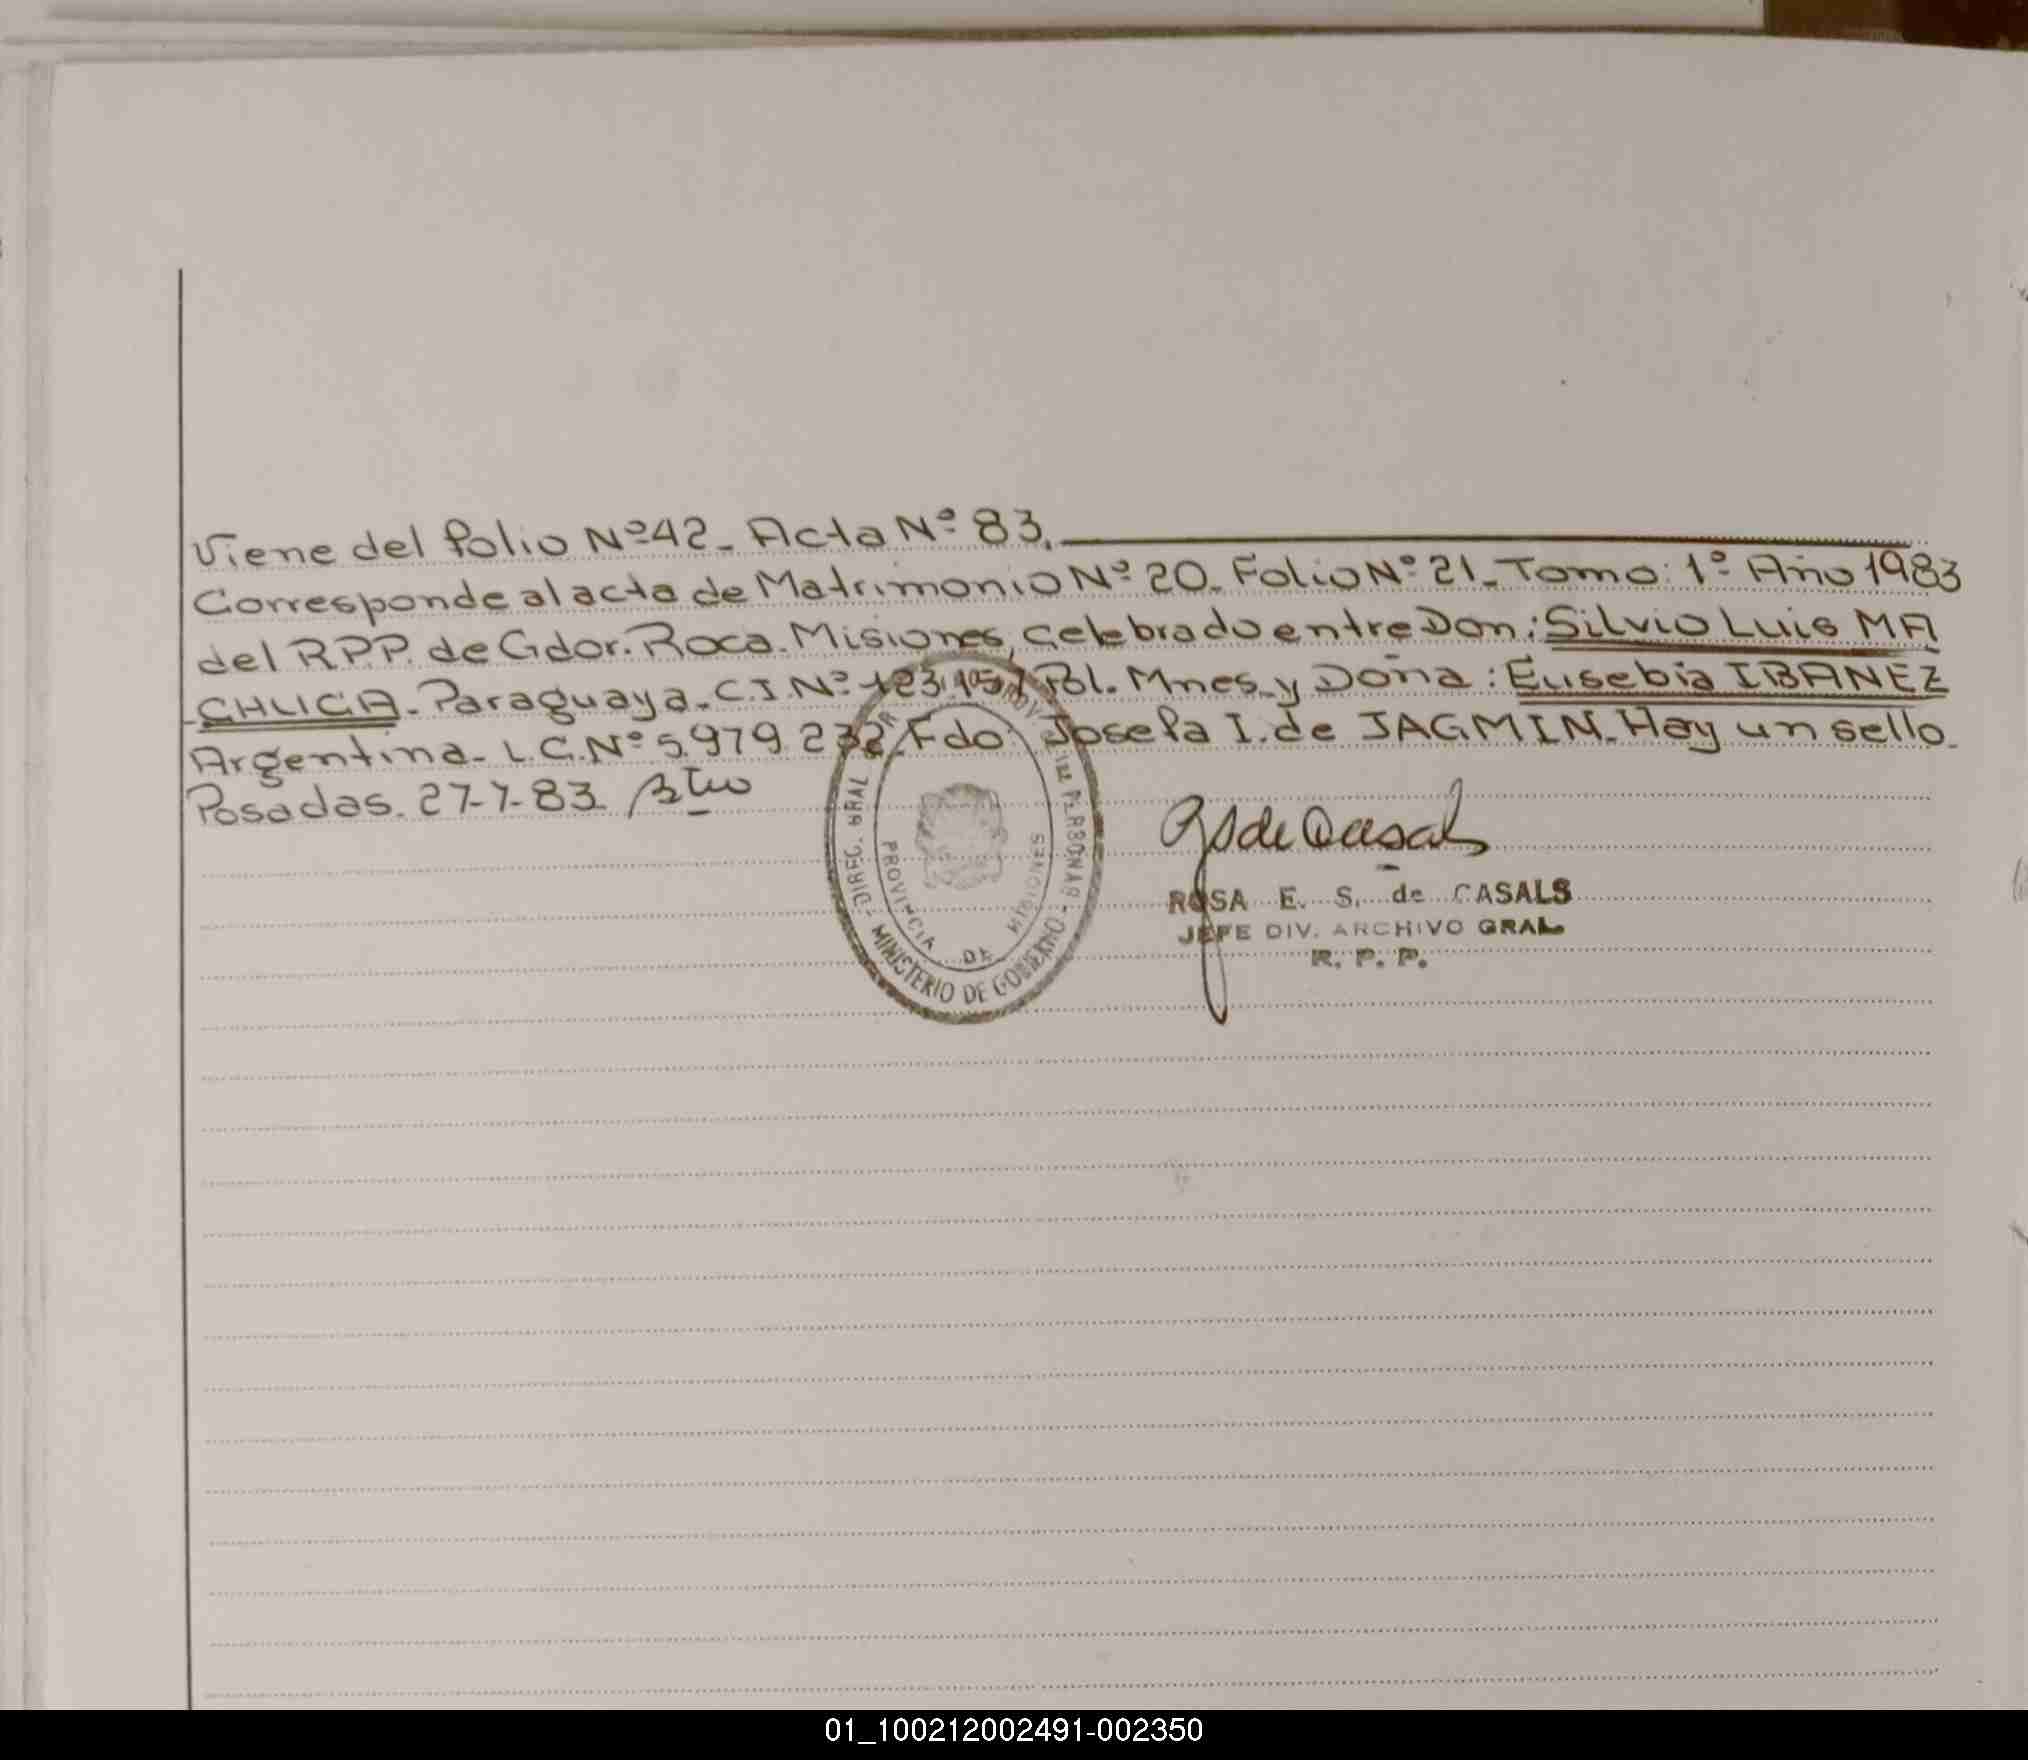 Viene del folio Nº42_ Acta Nº 83.
Corresponde al acta de Matrimonio Nº 20_ Folio Nº 21_ Tomo: 1º Año 1983
del R.P.P. de Gdor. Roca. Misiones, celebrado entre Don: Silvio Luis MA
CHUCA_ Paraguaya_ C.I. Nº 123.157 Pol. Mnes_ y Doña: Eusebia IBAÑEZ
Argentina_ L.C. Nº 5.979.232. Fdo: Josefa I. de JAGMIN_ Hay un sello_
Posadas. 27-7-83
DIREC. GRAL
PERSONAS
MINISTERIO DE GOBIERNO
PROVINCIA DE MISIONES
de Casals
ROSA E. S. de CASALS
JEFE DIV. ARCHIVO GRAL.
R. P. P.
01_100212002491-002350